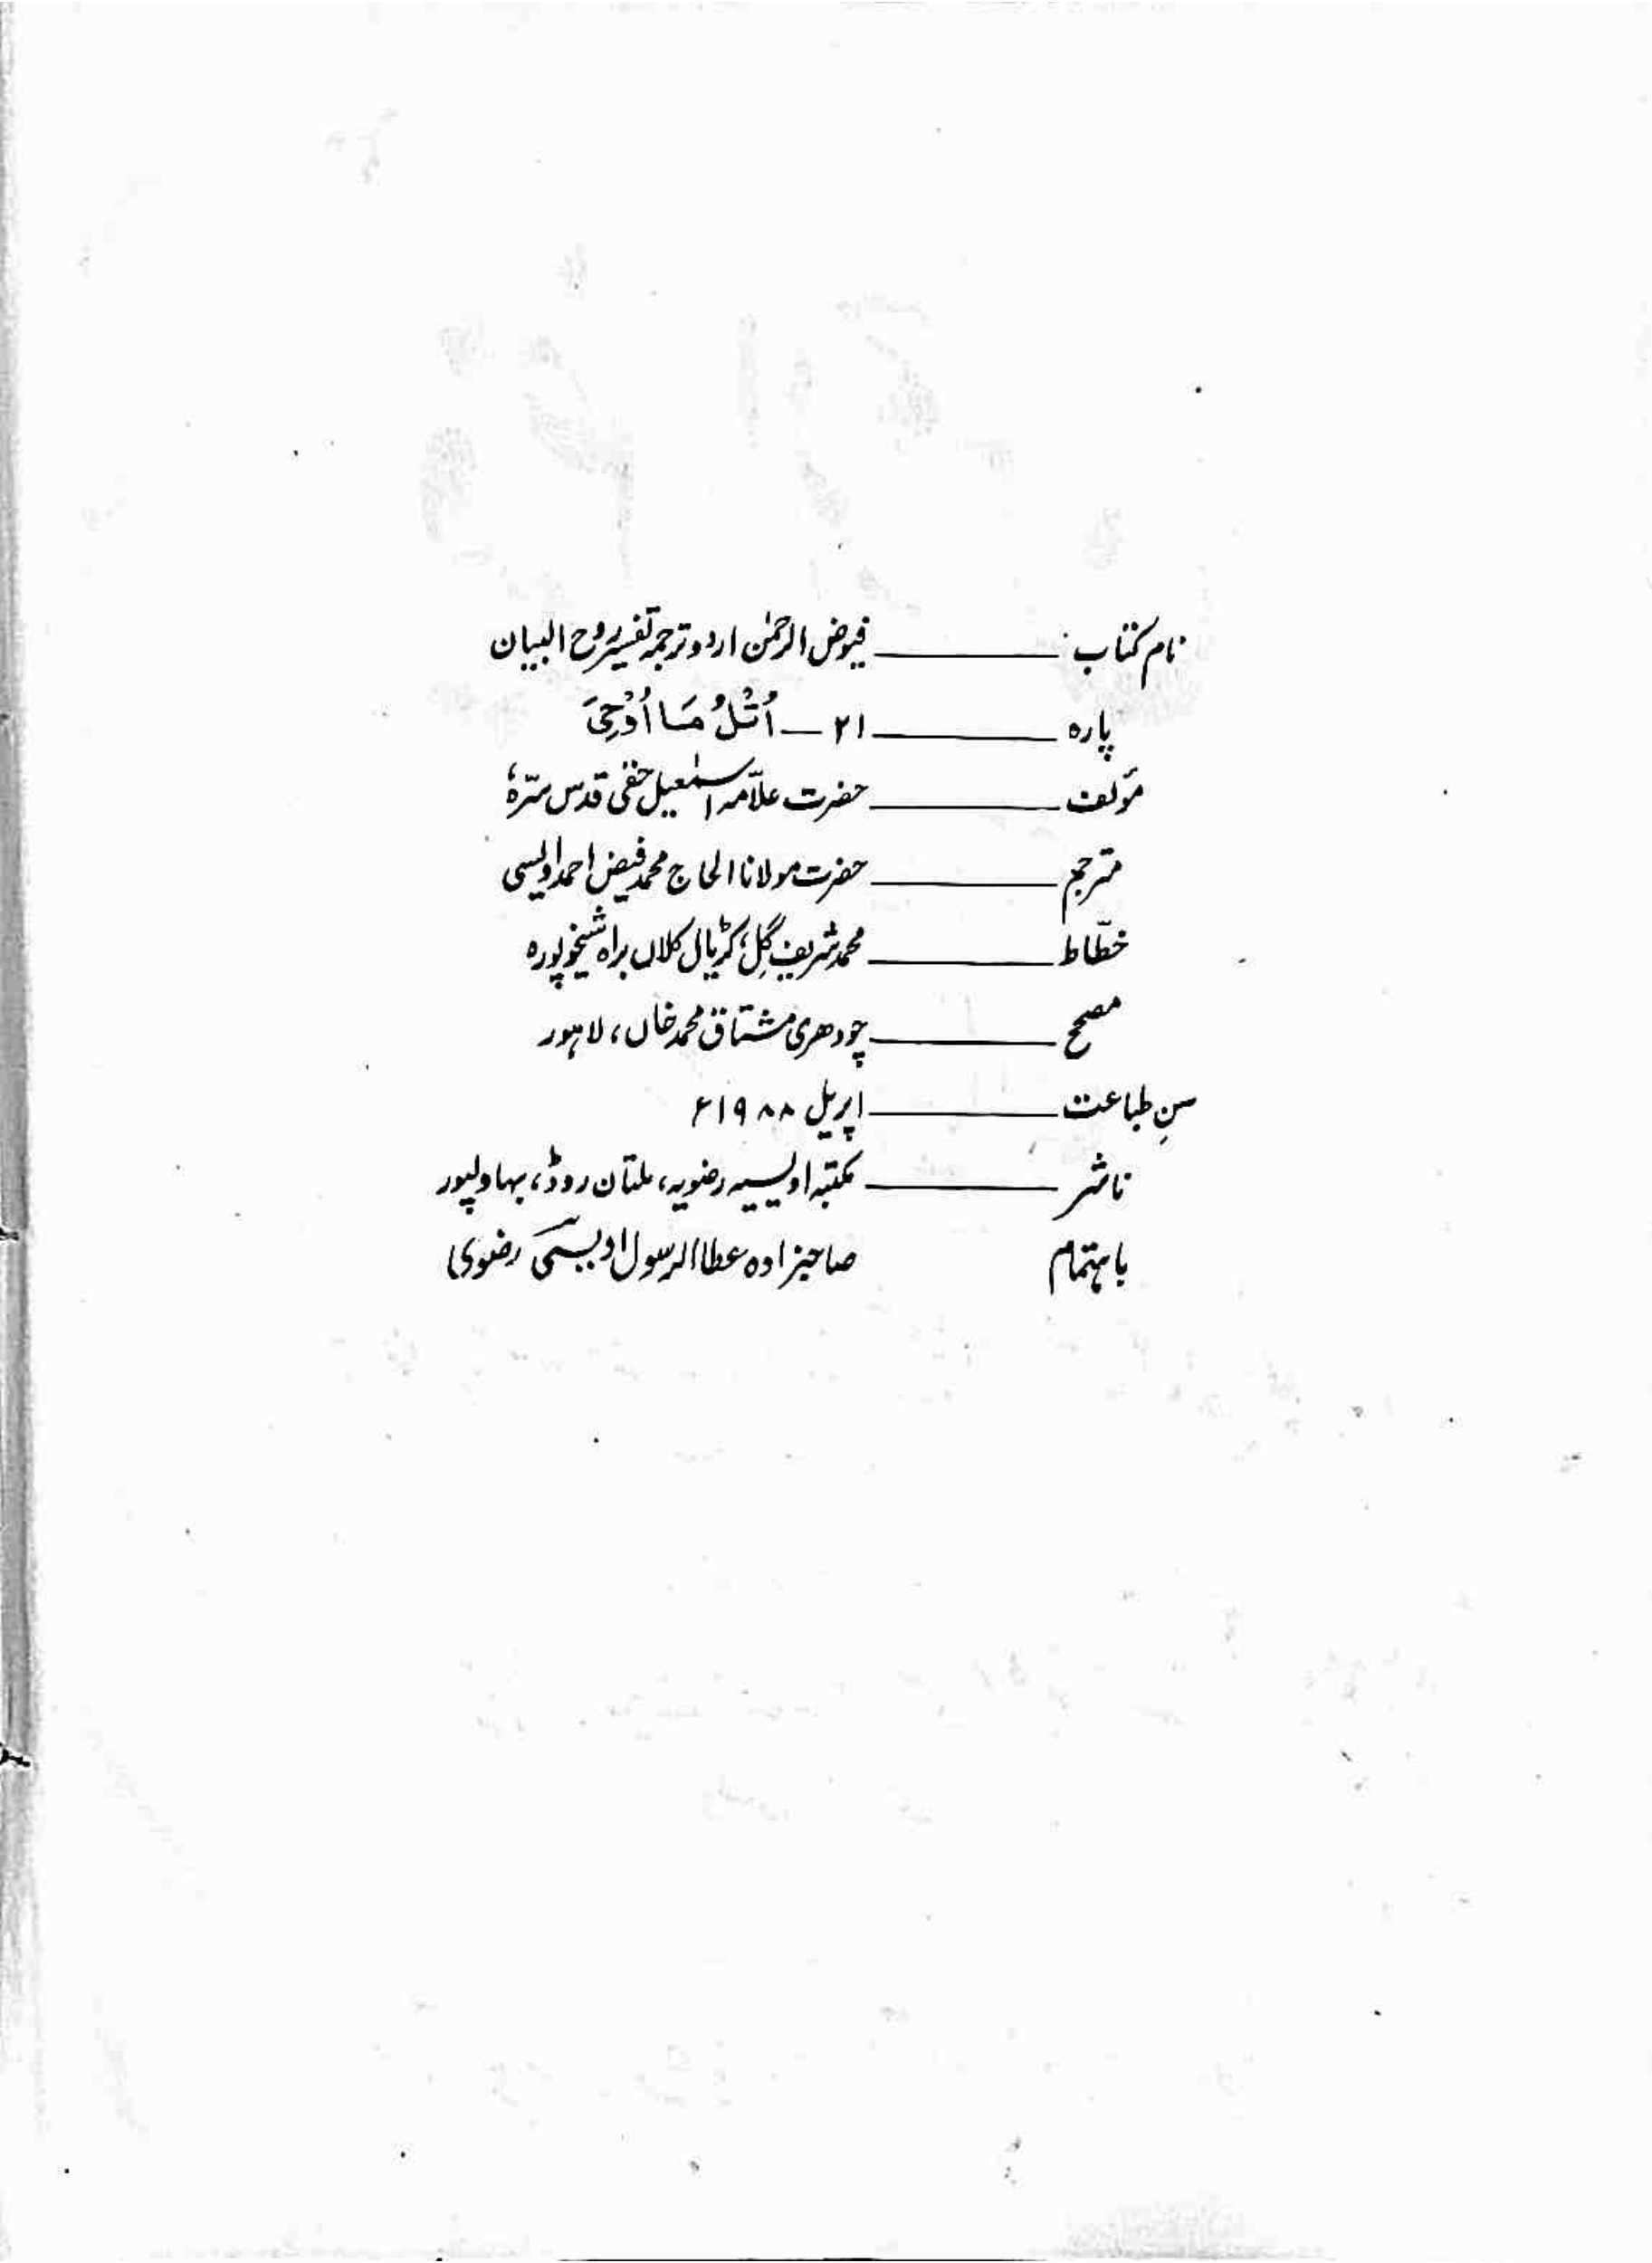 نام کتاب : ـــــــــ فیوض الرحمٰن اردو ترجمہ تفسیر روح البیان
پارہ ـــــــــ ۲۱ ـ اُتْلُ مَا اُوْحِیَ
مؤلف ـــــــــ حضرت علاّمہ اسمٰعیل حقی قدس سرّہٗ
مترجم ـــــــــ حضرت مولانا الحاج محمد فیض احمد اویسی
خطّاط ـــــــــ محمد شریف گِل، کڑیال کلاں براہ شیخوپورہ
مصحح ـــــــــ چودھری مشتاق محمد خاں، لاہور
سنِ طباعت ـــــــــ اپریل ۱۹۸۸ء
ناشر ـــــــــ مکتبہ اویسیہ رضویہ، ملتان روڈ، بہاولپور
باہتمام صاحبزادہ عطا الرسول اویسی رضوی